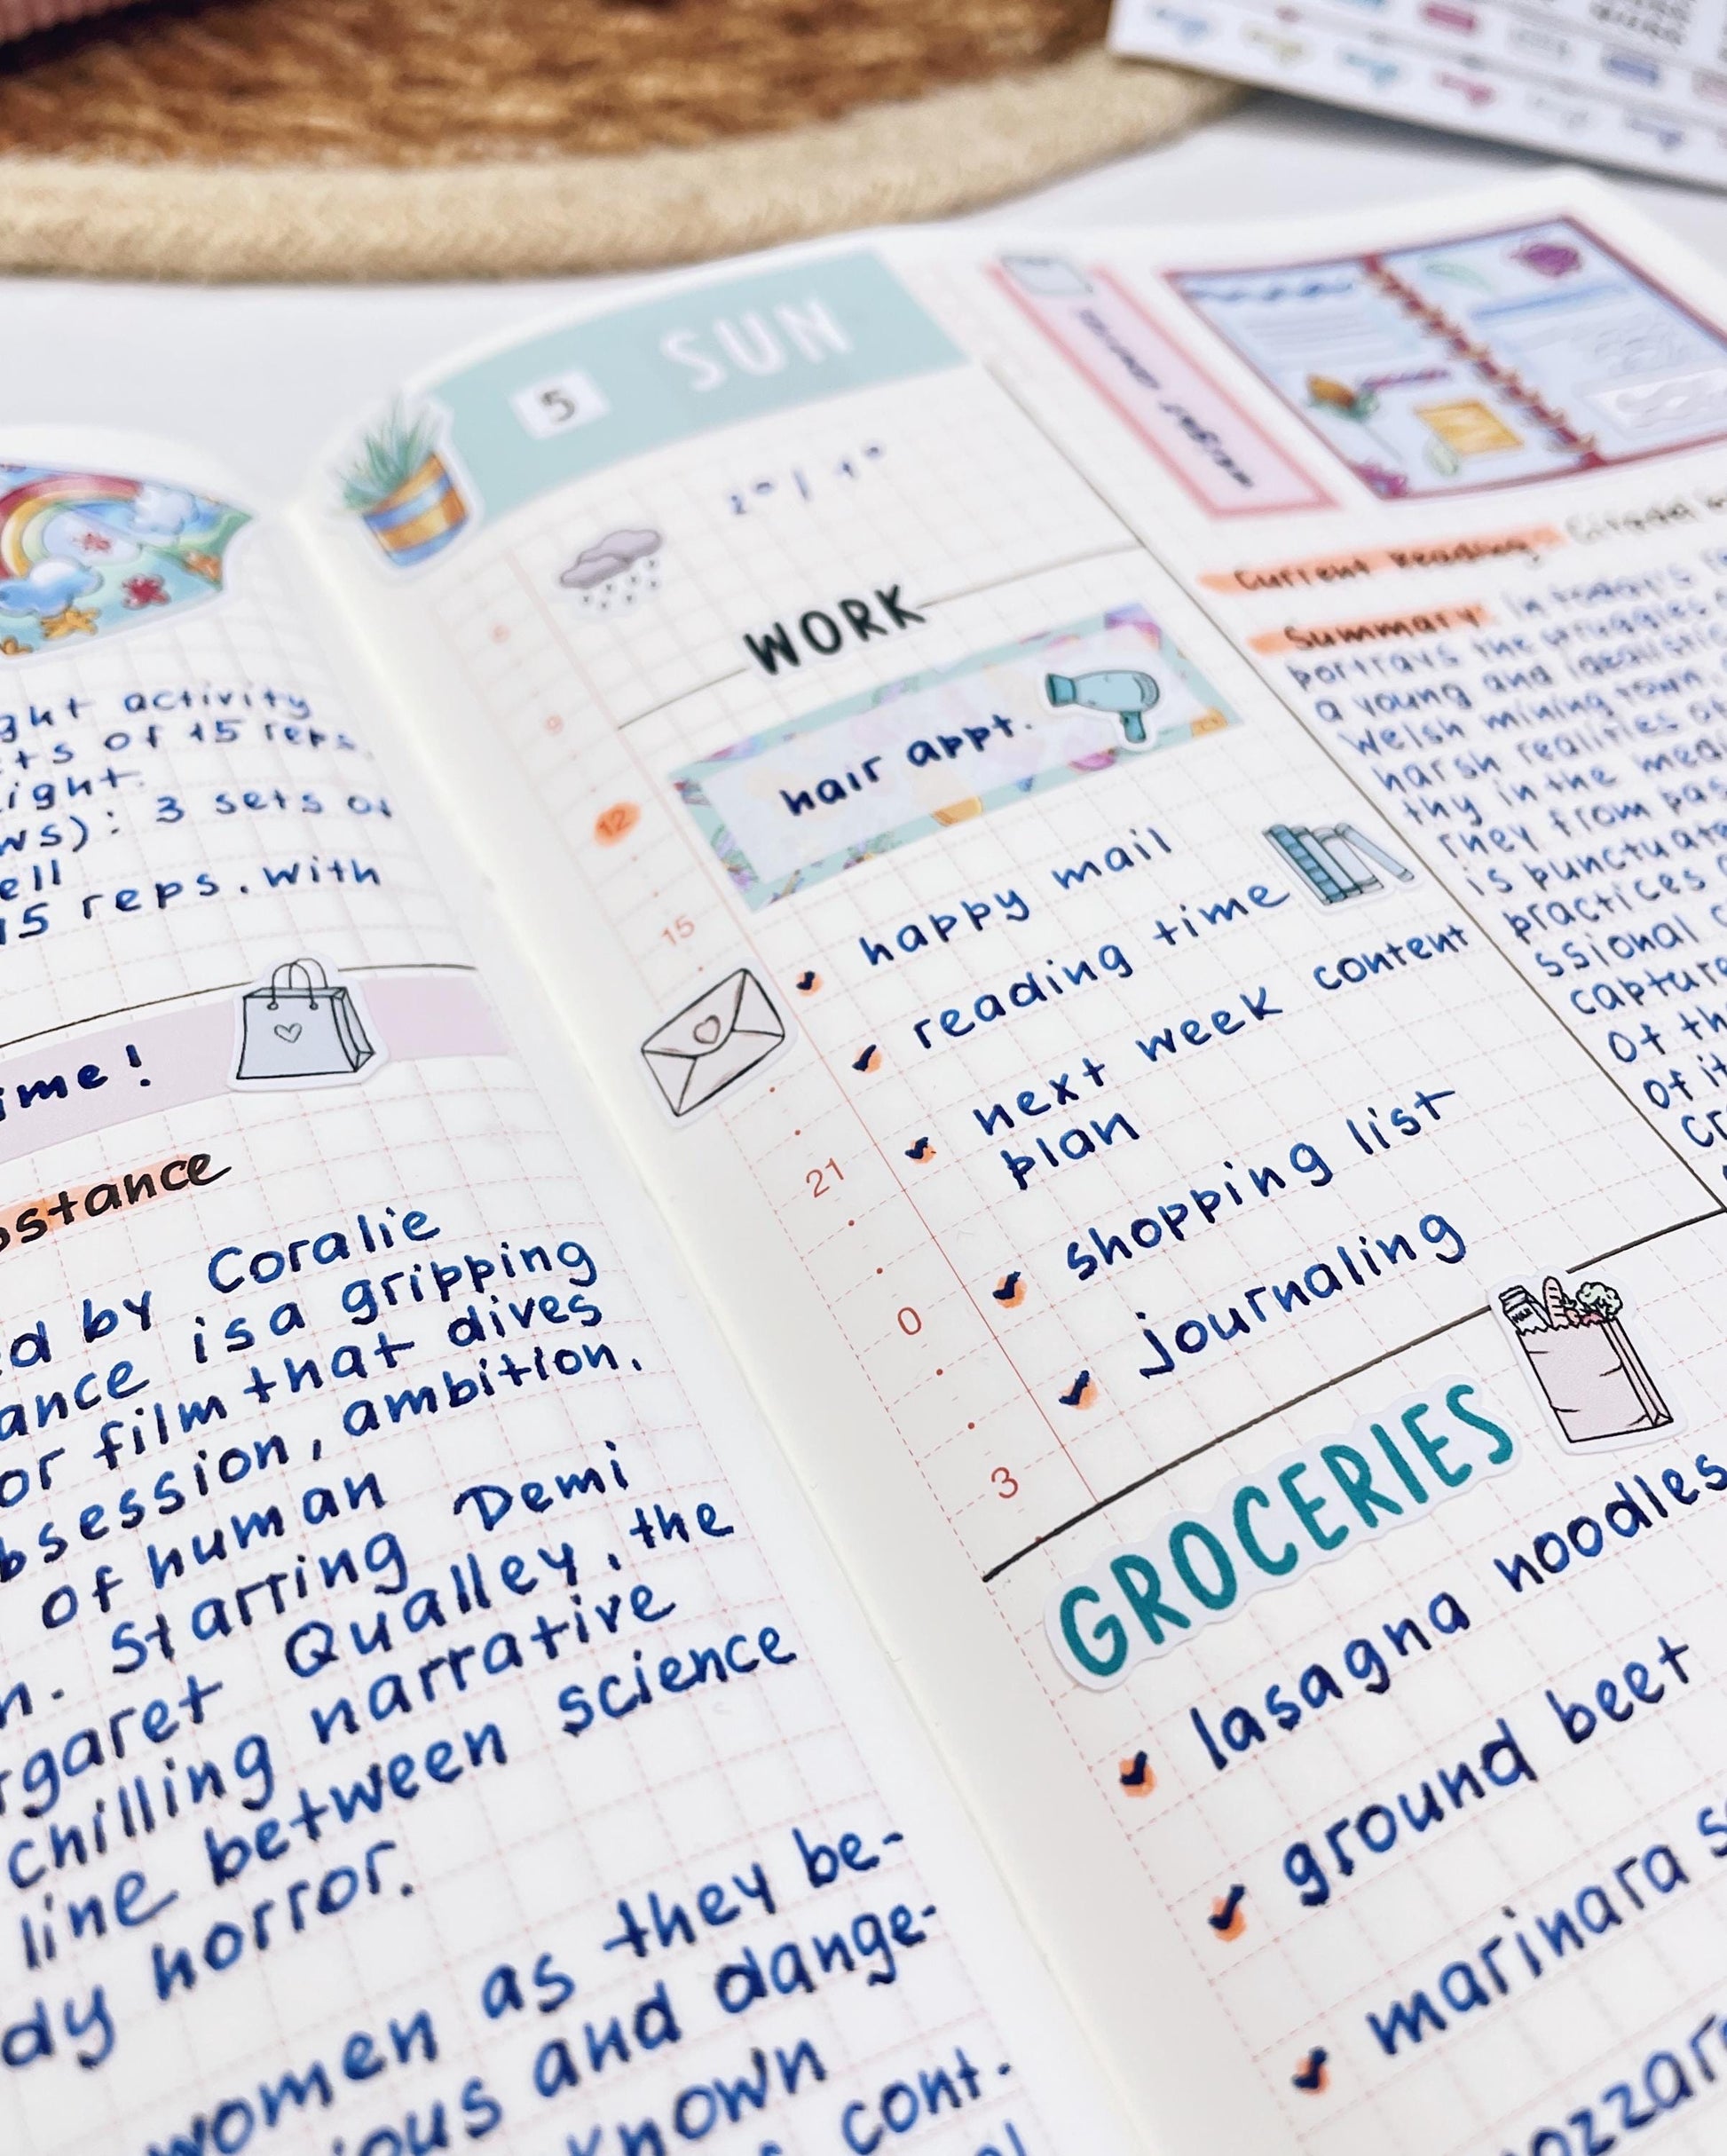 ght activity
ts of 15 reps.
ight.
ws): 3 sets of
ell
15 reps. with
ime!
bstance
ed by Coralie
ance is a gripping
or film that dives
bsession, ambition,
of human
n. Starring Demi
rgaret Qualley, the
chilling narrative
line between science
dy horror.
women as they be-
ious and dange-
known
cont.
5 SUN
WORK
hair appt.
happy mail
reading time
next week content
plan
shopping list
journaling
9
12
15
21
0
3
GROCERIES
lasagna noodles
ground beet
marinara s
ozzar
Current Reading: Citadel
Summary: In today's
portrays the struggles
a young and idealistic
Welsh mining town.
harsh realities of
thy in the medi
rney from pas
is punctuat
practices
ssional c
captur
of th
of it
cr